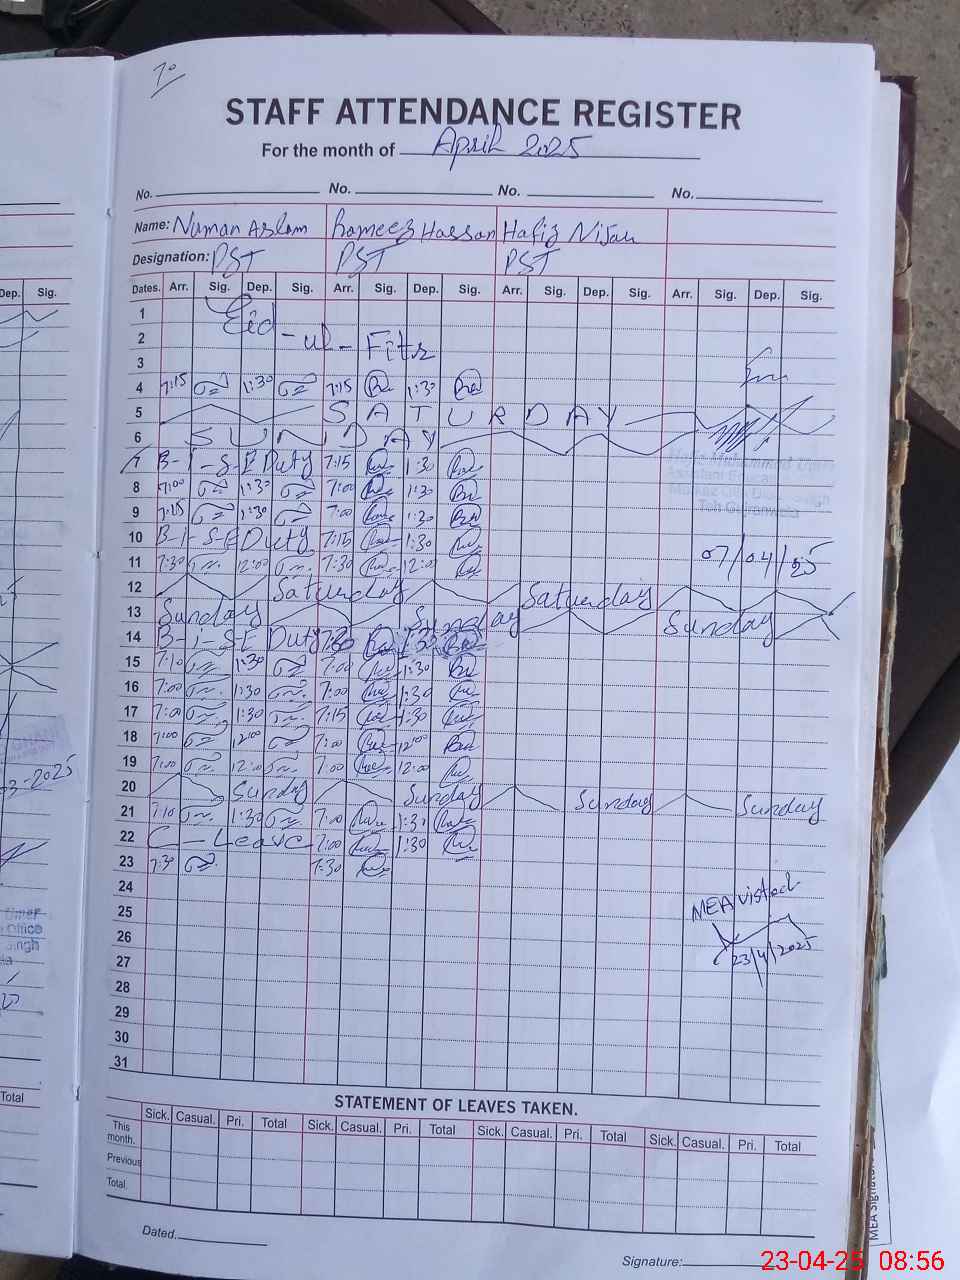 STAFF ATTENDANCE REGISTER
For the month of April 2025
No. No. No. No.
Name: Numan Aslam Rameez Hassan Hafiz
Designation: PST PST PST
Dates. Arr. Sig. Dep. Sig. Arr. Sig. Dep. Sig. Arr. Sig. Dep. Sig. Arr. Sig. Dep. Sig.
Dep. Sig.
1
Eid-ul-Fitr
2
3
4 7:15 1:30 7:15 1:30
5 SATURDAY
6 SUNDAY
7 B-I-S-E Duty 7:15 1:30
8 7:00 1:30 7:00 1:30
9 7:15 1:30 7:00 1:30
10 B-I-S-E Duty 7:15 1:30
07/04/25
11 7:30 12:00 7:30 12:00
12 Saturday Saturday
13 Sunday Sunday Sunday
14 B-I-S-E Duty 7:30 1:30
15 7:10 1:30 7:00 1:30
16 7:00 1:30 7:00 1:30
17 7:00 1:30 7:15 1:30
18 7:00 12:00 7:00 12:00
19 7:00 12:00 7:00 12:00
20 Sunday Sunday Sunday Sunday
21 7:10 1:30 7:00 1:30
22 C-Leave 7:00 1:30
23 7:30 7:30
24
MEA visted
25
26
23/4/2025
27
28
29
30
31
3-2025
Office
Total
STATEMENT OF LEAVES TAKEN.
Sick. Casual. Pri. Total Sick. Casual. Pri. Total Sick. Casual. Pri. Total Sick. Casual. Pri. Total
This month.
Previous
Total.
Dated.
Signature:
23-04-25 08:56